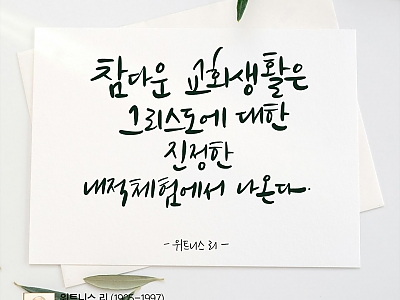 참다운 교회생활은
그리스도에 대한
진정한
내적체험에서 나온다.
- 위트니스 리 -
위트니스 리 (1905-1997)